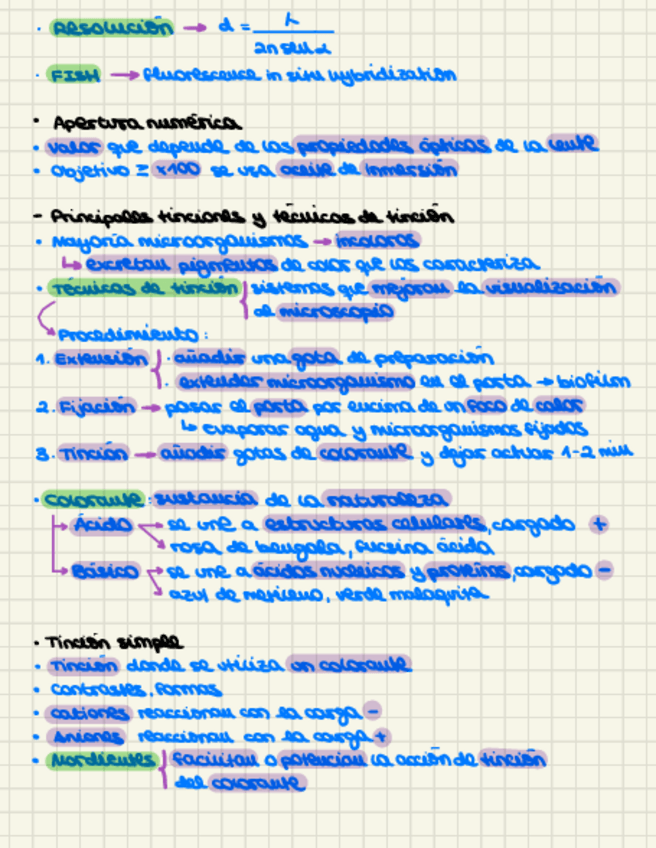 · RESOLUCIÓN → d = λ / 2n senα
· FISH → fluorescence in situ hybridization
· Apertura numérica
· valor que depende de las propiedades ópticas de la lente
· Objetivo I x100 se usa aceite de inmersión
- Principales tinciones y técnicas de tinción
· Mayoría microorganismos → incoloros
↳ excretan pigmentos de color que los caracteriza
· Técnicas de tinción { sistemas que mejoran la visualización
de microscopio
Procedimiento:
1. Extensión { · añadir una gota de preparación
· extender microorganismo en el porta → biofilm
2. Fijación → pasar el porta por encima de un foco de calor
↳ evaporar agua y microorganismos fijados
3. Tinción → añadir gotas de colorante y dejar actuar 1-2 min
· Colorante: sustancia de la naturaleza
→ Ácido → se une a estructuras celulares, cargado +
→ rosa de bengala, fucsina ácida
→ Básico → se une a ácidos nucleicos y proteínas, cargado -
→ azul de metileno, verde malaquita
· Tinción simple
· Tinción donde se utiliza un colorante
· contrastes, formas
· cationes reaccionan con la carga -
· Aniones reaccionan con la carga +
· Mordientes { Facilitan o potencian la acción de tinción
del colorante